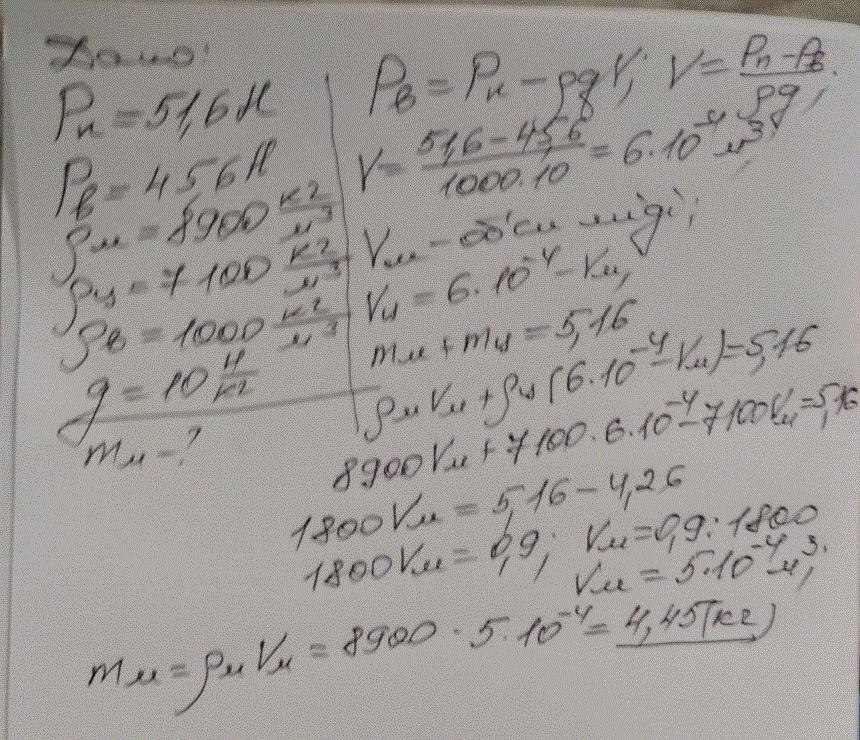 Дано:
Pп = 51,6 Н
Pв = 45,6 Н
ρм = 8900 кг/м³
ρц = 7100 кг/м³
ρв = 1000 кг/м³
g = 10 Н/кг
mм - ?
Pв = Pп - ρgV; V = (Pп - Pв)/ρg;
V = (51,6 - 45,6)/(1000·10) = 6·10⁻⁴ м³;
Vм - об'єм міді;
Vц = 6·10⁻⁴ - Vм;
mм + mц = 5,16
ρмVм + ρц(6·10⁻⁴ - Vм) = 5,16
8900Vм + 7100·6·10⁻⁴ - 7100Vм = 5,16
1800Vм = 5,16 - 4,26
1800Vм = 0,9; Vм = 0,9:1800
Vм = 5·10⁻⁴ м³;
mм = ρмVм = 8900·5·10⁻⁴ = 4,45 (кг)